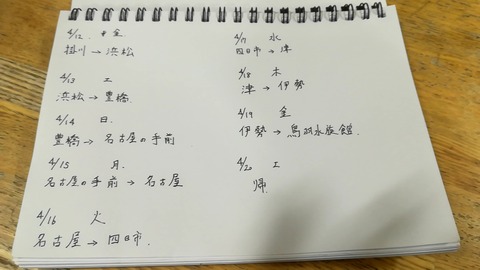 4/12 金
掛川→浜松
4/13 土
浜松→豊橋.
4/14 日.
豊橋→名古屋の手前
4/15 月.
名古屋の手前→名古屋
4/16 火
名古屋→四日市.
4/17 水
四日市→津
4/18 木
津→伊勢
4/19 金
伊勢→鳥羽水族館.
4/20 土
帰.